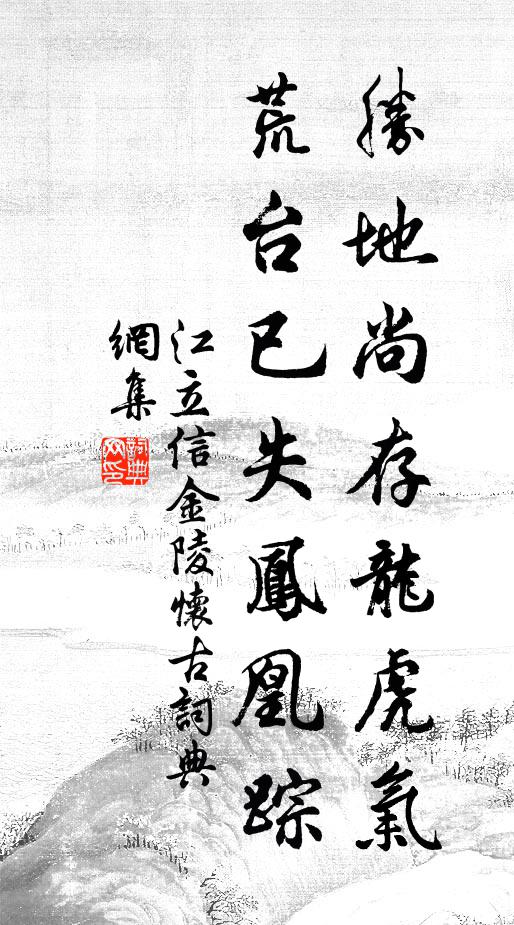 勝地尚存龍虎氣
荒台已失鳳凰踪
江立信金陵懷古詞典
網集
詞典
网印